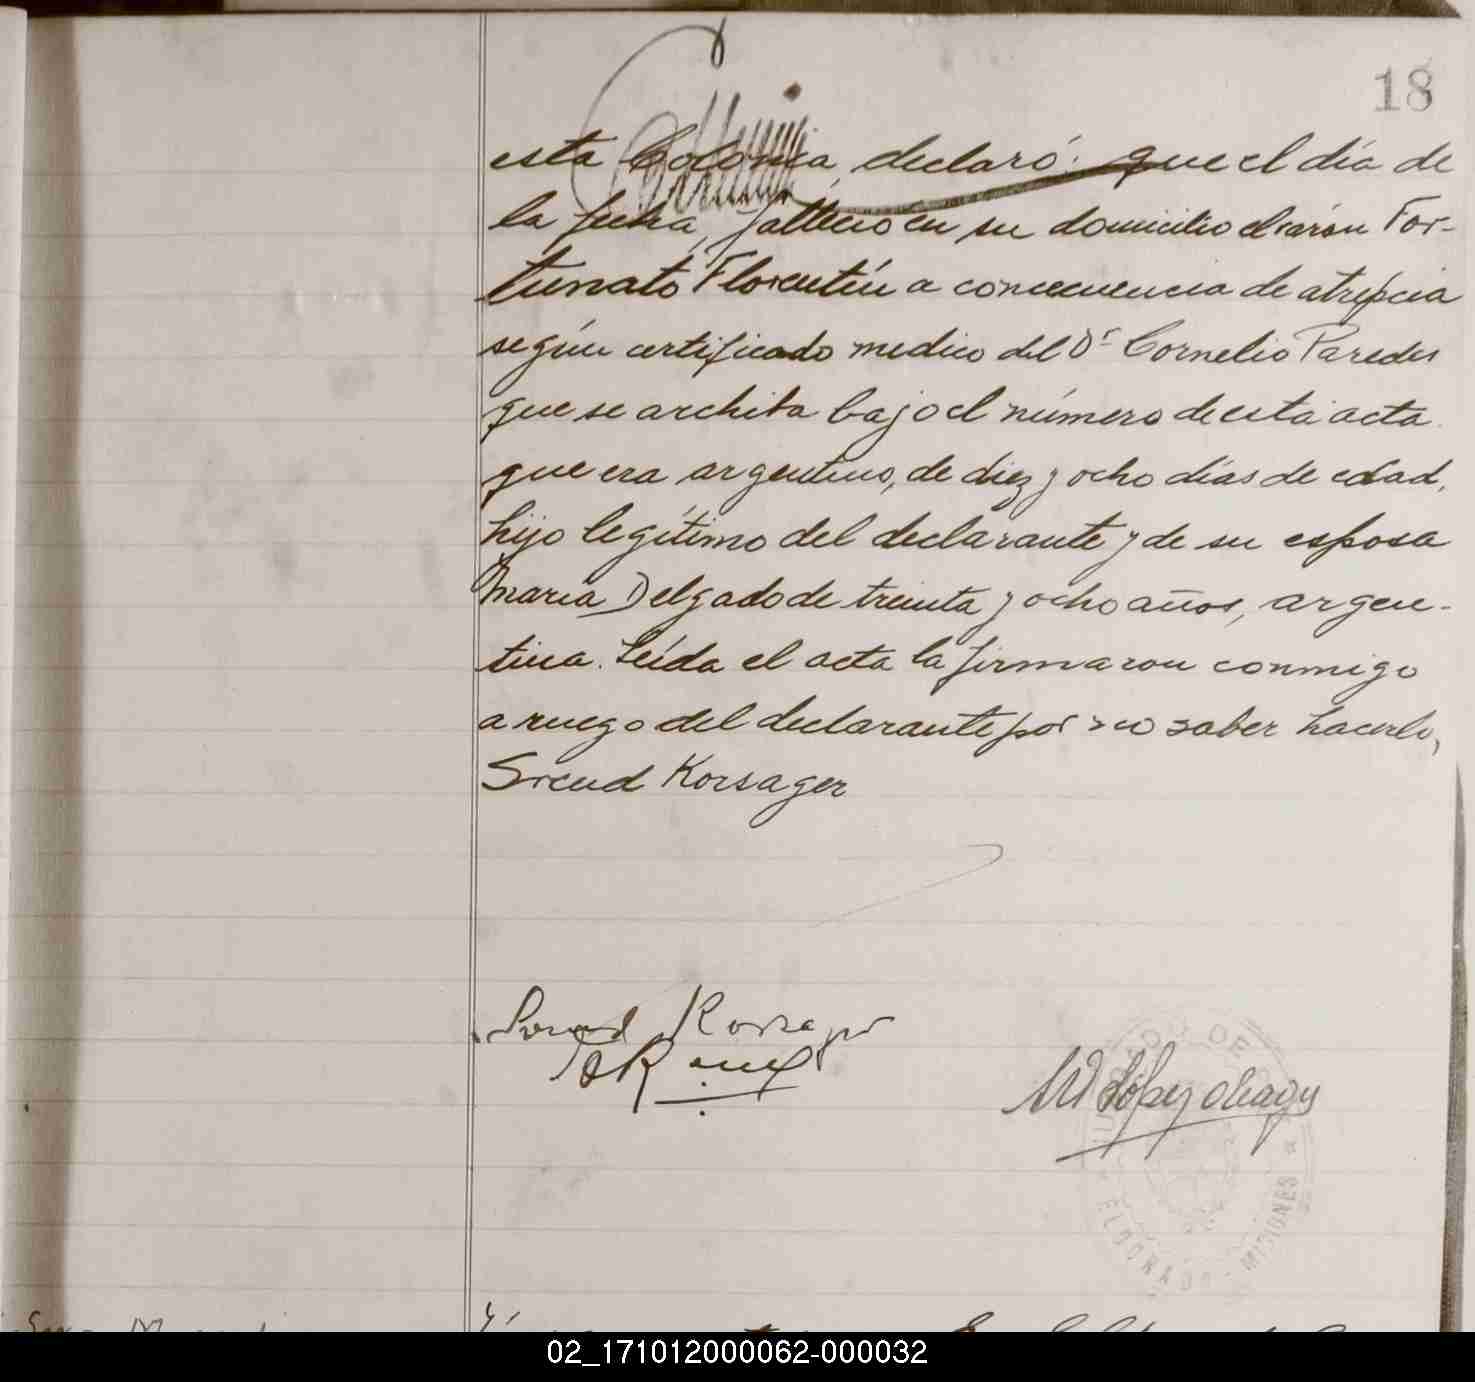 18
esta Colonia, declaró: que el día de
la fecha, falleció en su domicilio el varón For-
tunato Florentín a consecuencia de atrepcia
según certificado medico del Dr Cornelio Paredes
que se archiba bajo el número de esta acta.
que era argentino, de diez y ocho días de edad,
hijo legítimo del declarante y de su esposa
Maria Delgado de treinta y ocho años, argen-
tina. Leída el acta la firmaron conmigo
a ruego del declarante por no saber hacerlo,
Svend Korsager
Svend Korsager
López
JUZGADO DE
ELDORADO - MISIONES
02_171012000062-000032